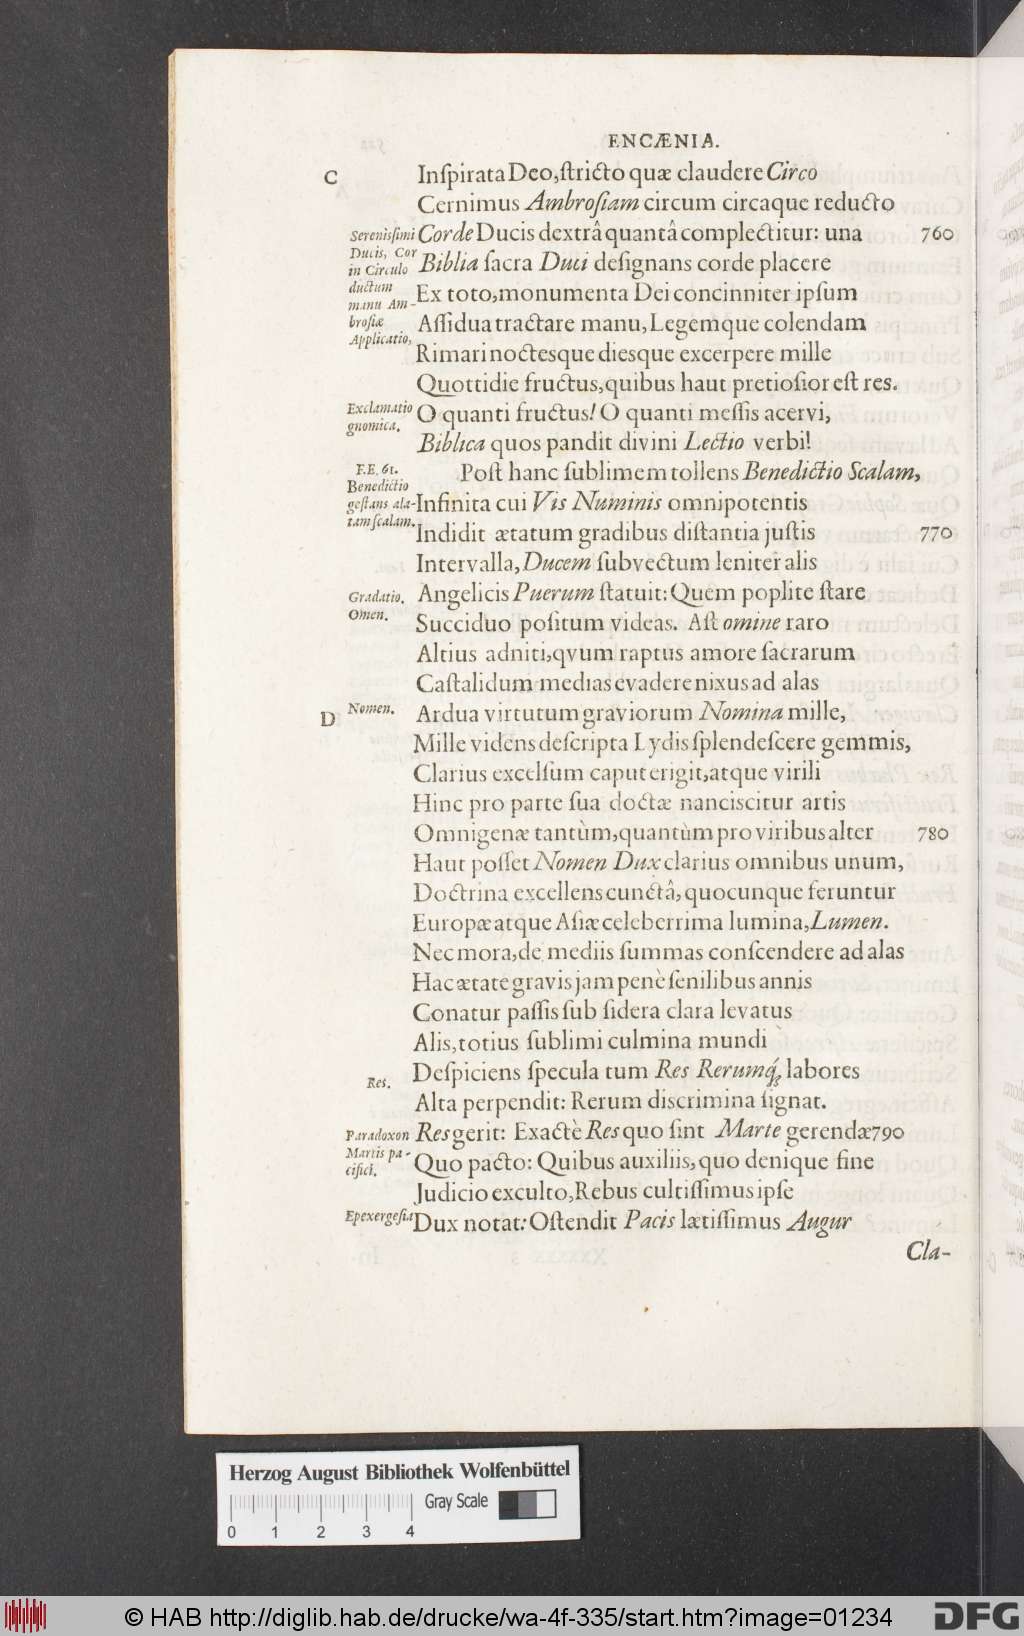 ENCÆNIA.
C
Inſpirata Deo, ſtricto quæ claudere Circo
Cernimus Ambroſiam circum circaque reducto
Sereniſſimi Ducis, Cor in Circulo ductum manu Ambroſiæ Applicatio,
Corde Ducis dextrâ quantâ complectitur: una 760
Biblia ſacra Duci deſignans corde placere
Ex toto, monumenta Dei concinniter ipſum
Aſſidua tractare manu, Legemque colendam
Rimari noctesque diesque excerpere mille
Quottidie fructus, quibus haut pretioſior eſt res.
Exclamatio gnomica.
O quanti fructus! O quanti meſſis acervi,
Biblica quos pandit divini Lectio verbi!
F.E. 61. Benedictio geſtans alatam ſcalam.
Poſt hanc ſublimem tollens Benedictio Scalam,
Infinita cui Vis Numinis omnipotentis
Indidit ætatum gradibus diſtantia juſtis 770
Intervalla, Ducem ſubvectum leniter alis
Gradatio. Omen.
Angelicis Puerum ſtatuit: Quem poplite ſtare
Succiduo poſitum videas. Aſt omine raro
Altius adniti, qvum raptus amore ſacrarum
Caſtalidum medias evadere nixus ad alas
D
Nomen.
Ardua virtutum graviorum Nomina mille,
Mille videns deſcripta Lydis ſplendeſcere gemmis,
Clarius excelſum caput erigit, atque virili
Hinc pro parte ſua doctæ nanciſcitur artis
Omnigenæ tantùm, quantùm pro viribus alter 780
Haut poſſet Nomen Dux clarius omnibus unum,
Doctrina excellens cunctâ, quocunque feruntur
Europæ atque Aſiæ celeberrima lumina, Lumen.
Nec mora, de mediis ſummas conſcendere ad alas
Hac ætate gravis jam penè ſenilibus annis
Conatur paſſis ſub ſidera clara levatus
Alis, totius ſublimi culmina mundi
Res.
Deſpiciens ſpecula tum Res Rerumq́; labores
Alta perpendit: Rerum discrimina ſignat.
Paradoxon Martis pacifici.
Res gerit: Exactè Res quo ſint Marte gerendæ 790
Quo pacto: Quibus auxiliis, quo denique fine
Judicio exculto, Rebus cultiſſimus ipſe
Epexergeſia
Dux notat: Oſtendit Pacis lætiſſimus Augur
Cla-
Herzog August Bibliothek Wolfenbüttel
Gray Scale
0 1 2 3 4
© HAB http://diglib.hab.de/drucke/wa-4f-335/start.htm?image=01234
DFG